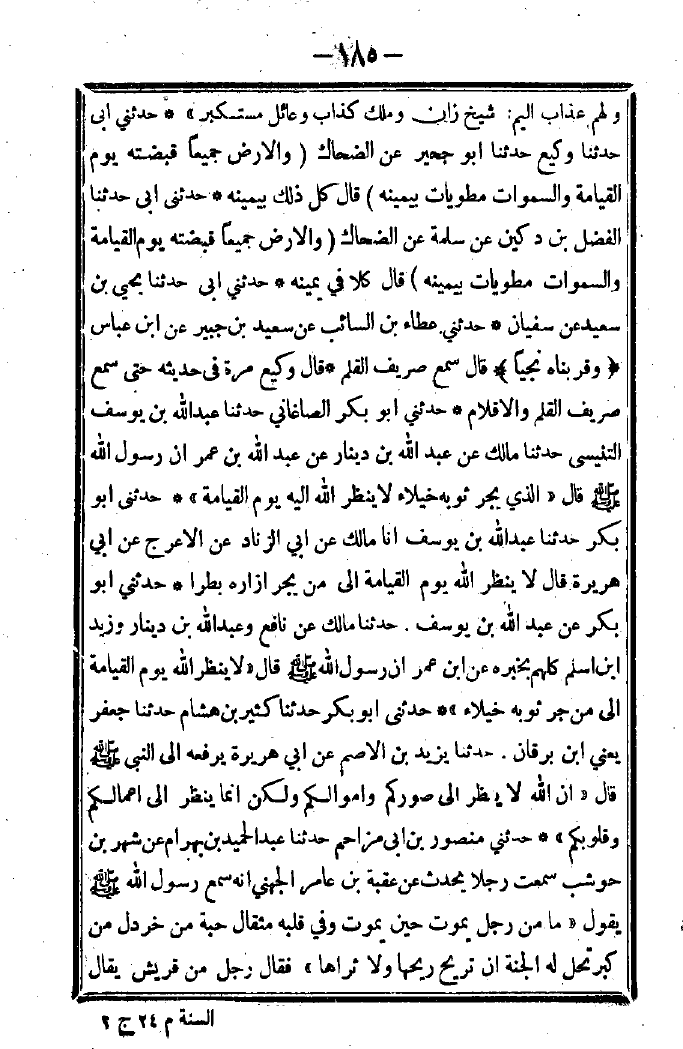 — ١٨٥ —
ولهم عذاب اليم: شيخ زان وملك كذاب وعائل مستكبر » * حدثني ابى
حدثنا وكيع حدثنا ابو حجير عن الضحاك ( والارض جميعاً قبضته يوم
القيامة والسموات مطويات بيمينه ) قال كل ذلك بيمينه * حدثنى ابى حدثنا
الفضل بن دكين عن سلمة عن الضحاك ( والارض جميعاً قبضته يوم القيامة
والسموات مطويات بيمينه ) قال كلا في يمينه * حدثني ابى حدثنا يحيى بن
سعيد عن سفيان * حدثني عطاء بن السائب عن سعيد بن جبير عن ابن عباس
﴿ وقربناه نجياً ﴾ قال سمع صريف القلم * قال وكيع مرة فى حديثه حتى سمع
صريف القلم والاقلام * حدثني ابو بكر الصاغاني حدثنا عبدالله بن يوسف
التنيسى حدثنا مالك عن عبد الله بن دينار عن عبد الله بن عمر ان رسول الله
ﷺ قال « الذي يجر ثوبه خيلاء لا ينظر الله اليه يوم القيامة » * حدثنى ابو
بكر حدثنا عبدالله بن يوسف انا مالك عن ابي الزناد عن الاعرج عن ابي
هريرة قال لا ينظر الله يوم القيامة الى من يجر ازاره بطرا * حدثني ابو
بكر عن عبد الله بن يوسف . حدثنا مالك عن نافع وعبدالله بن دينار وزيد
ابن اسلم كلهم يخبره عن ابن عمر ان رسول الله ﷺ قال « لا ينظر الله يوم القيامة
الى من جر ثوبه خيلاء » * حدثنى ابو بكر حدثنا كثير بن هشام حدثنا جعفر
يعني ابن برقان . حدثنا يزيد بن الاصم عن ابي هريرة يرفعه الى النبي ﷺ
قال « ان الله لا ينظر الى صوركم واموالكم ولكن انما ينظر الى اعمالكم
وقلوبكم » * حدثني منصور بن ابى مزاحم حدثنا عبدالحميد بن بهرام عن شهر بن
حوشب سمعت رجلا يحدث عن عقبة بن عامر الجهني انه سمع رسول الله ﷺ
يقول « ما من رجل يموت حين يموت وفي قلبه مثقال حبة من خردل من
كبر تحل له الجنة ان تريح ريحها ولا تراها » فقال رجل من قريش يقال
السنة م ٢٤ ج ٢